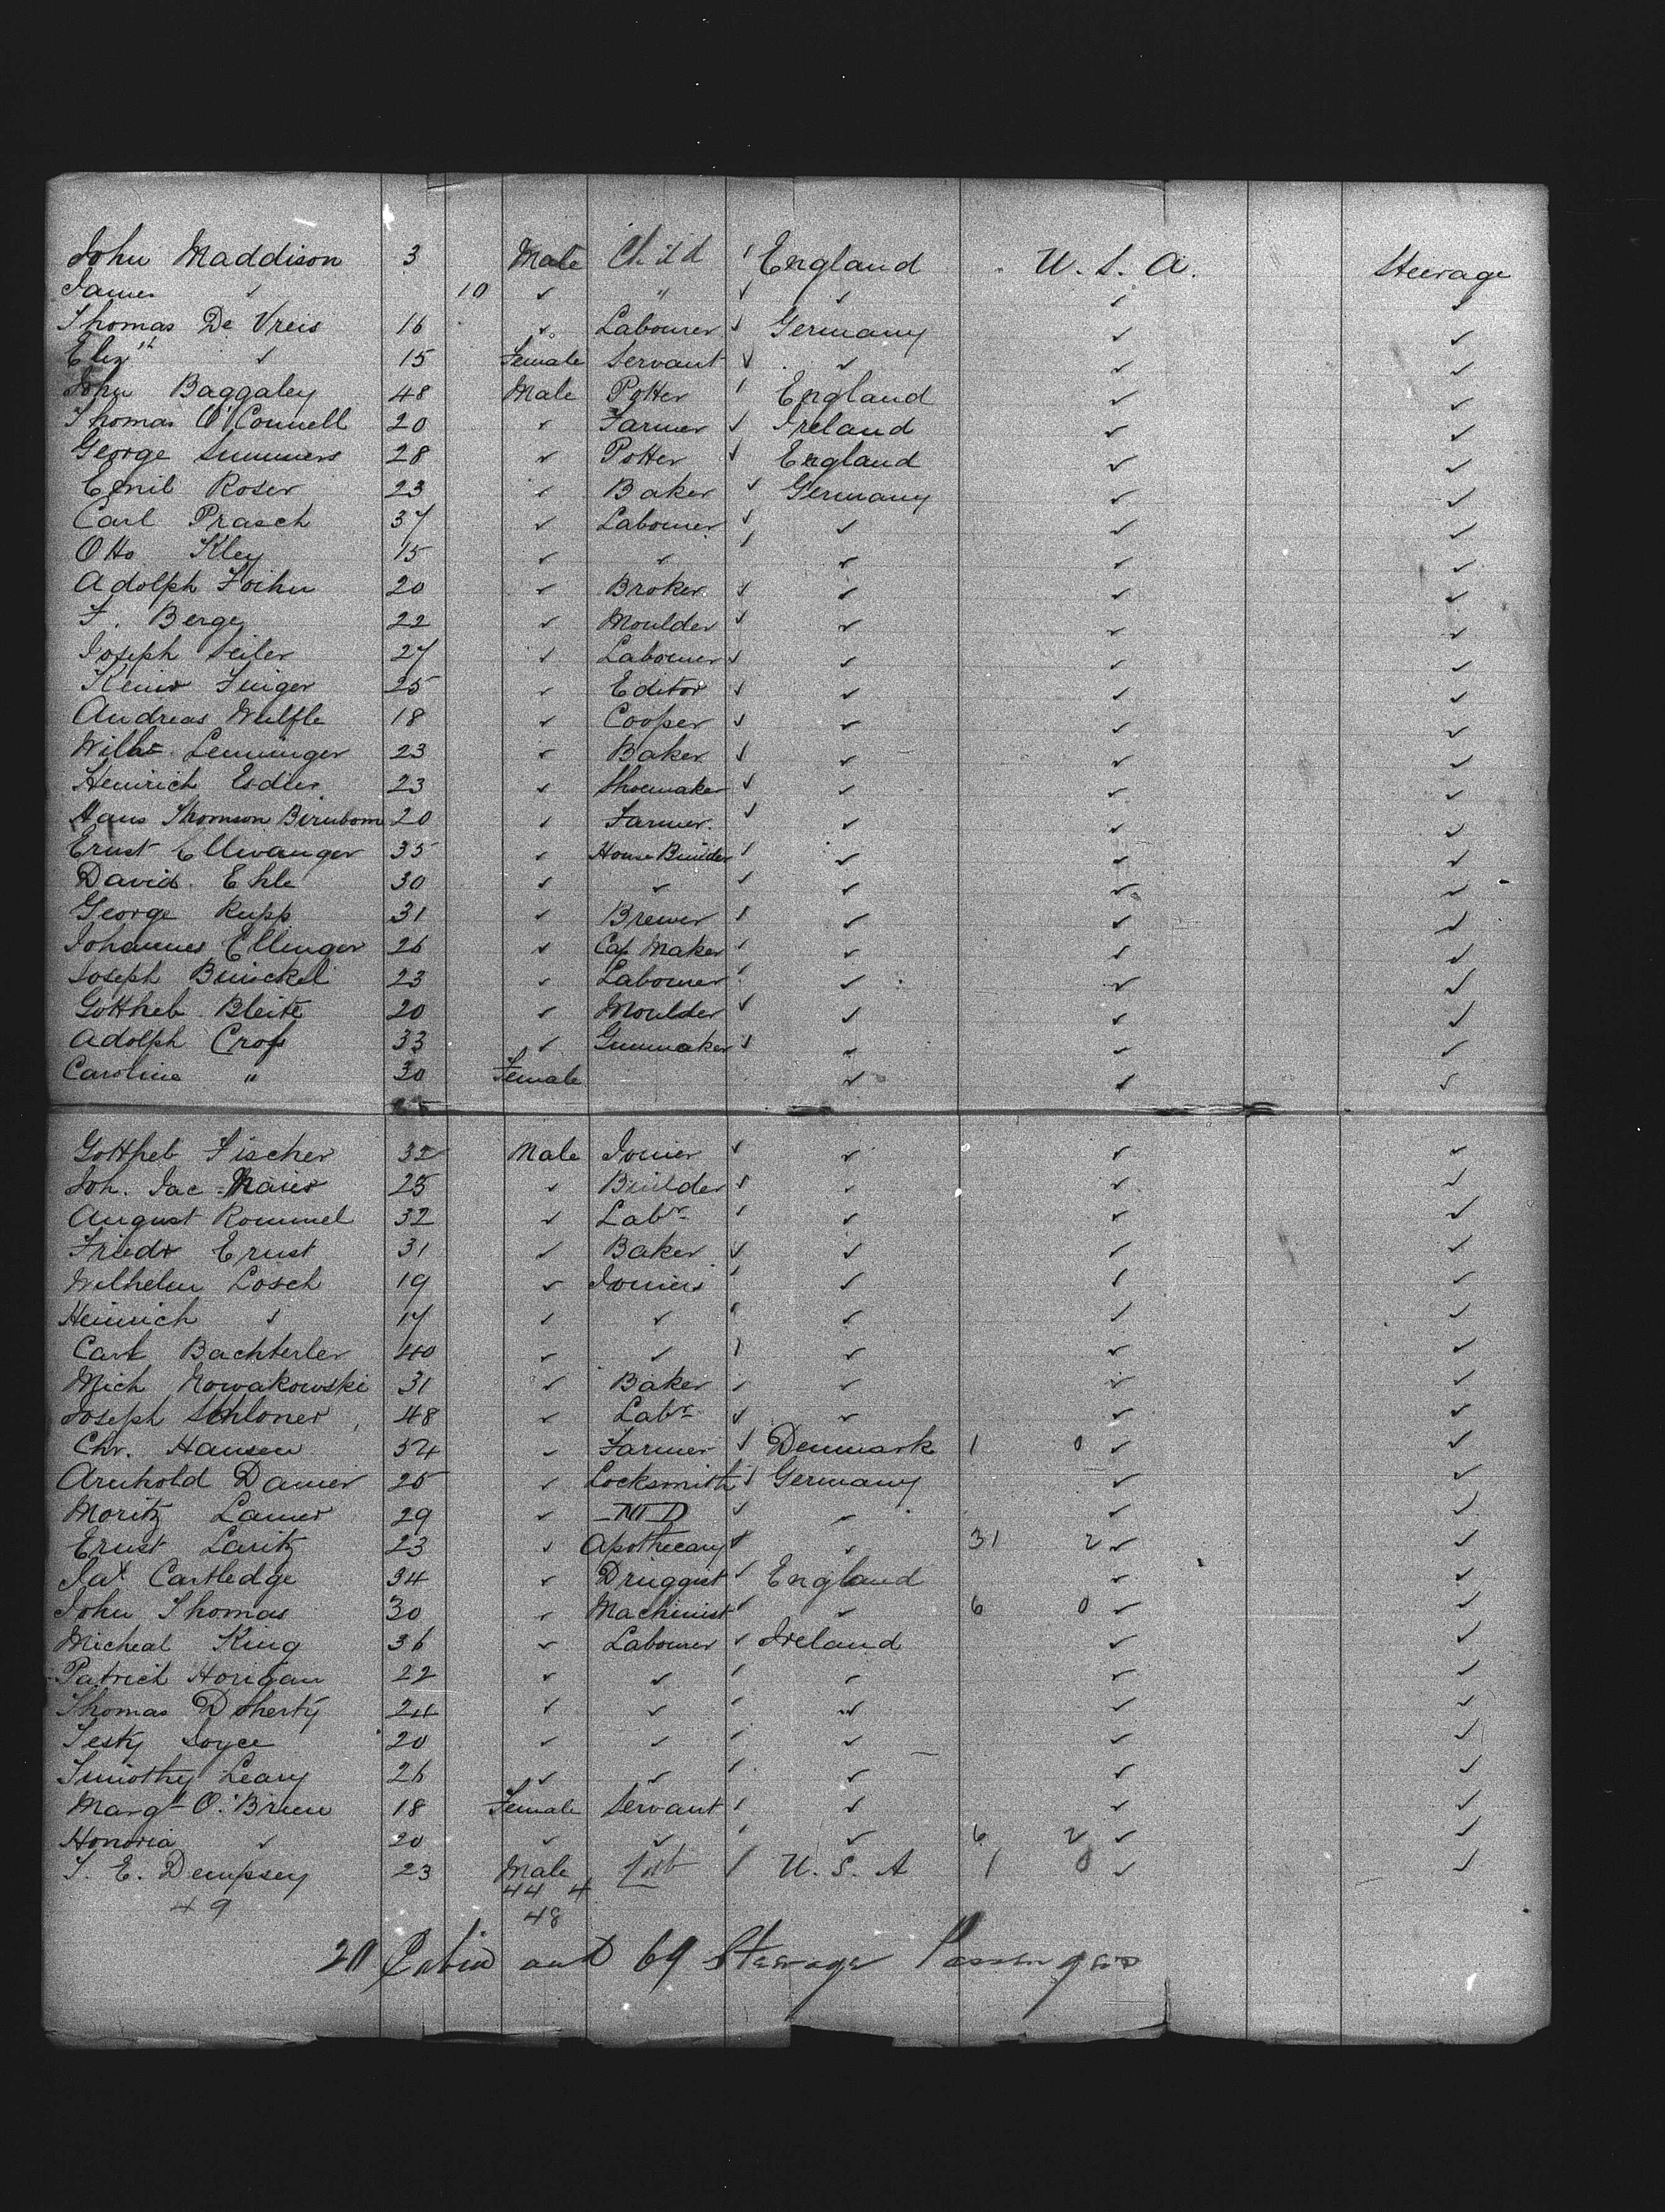 John Maddison 3 Male Child ✓ England U. S. A. Steerage
James ✓ 10 ✓ " ✓ ✓ ✓ ✓
Thomas De Vreis 16 ✓ Labourer ✓ Germany ✓ ✓
Elizth ✓ 15 Female Servant ✓ ✓ ✓ ✓
John Baggaley 48 Male Potter ✓ England ✓ ✓
Thomas O'Connell 20 ✓ Farmer ✓ Ireland ✓ ✓
George Summers 28 ✓ Potter ✓ England ✓ ✓
Emil Roser 23 ✓ Baker ✓ Germany ✓ ✓
Carl Prasch 37 ✓ Labourer ✓ ✓ ✓ ✓
Otto Kley 15 ✓ ✓ ✓ ✓ ✓ ✓
Adolph 20 ✓ Broker ✓ ✓ ✓ ✓
F. Berge 22 ✓ Moulder ✓ ✓ ✓ ✓
Joseph Seiler 27 ✓ Labourer ✓ ✓ ✓ ✓
Finger 25 ✓ Editor ✓ ✓ ✓ ✓
Andreas Wulfle 18 ✓ Cooper ✓ ✓ ✓ ✓
Wilhm Lenninger 23 ✓ Baker ✓ ✓ ✓ ✓
Heinrich Esdler 23 ✓ Shoemaker ✓ ✓ ✓ ✓
Hans Thomson Birnbom 20 ✓ Farmer ✓ ✓ ✓ ✓
Ernst Ellwanger 35 ✓ House Builder ✓ ✓ ✓ ✓
David Ehle 30 ✓ ✓ ✓ ✓ ✓ ✓
George Rupp 31 ✓ Brewer ✓ ✓ ✓ ✓
Johannes Ellinger 26 ✓ Cap Maker ✓ ✓ ✓ ✓
Joseph 23 ✓ Labourer ✓ ✓ ✓ ✓
Gottlieb Bleite 20 ✓ Moulder ✓ ✓ ✓ ✓
Adolph Crofs 33 ✓ Gunmaker ✓ ✓ ✓ ✓
Caroline " 30 Female ✓ ✓ ✓
Gottlieb Fischer 32 Male Joiner ✓ ✓ ✓ ✓
Joh. Jac. Maier 25 ✓ Builder ✓ ✓ ✓ ✓
August Rommel 32 ✓ Labr ✓ ✓ ✓ ✓
Friedr Ernst 31 ✓ Baker ✓ ✓ ✓ ✓
Wilhelm Losch 19 ✓ Joiner ✓ ✓ ✓ ✓
Heinrich ✓ 17 ✓ ✓ ✓ ✓ ✓ ✓
Carl Bachterler 40 ✓ ✓ ✓ ✓ ✓ ✓
Mich Nowakowski 31 ✓ Baker ✓ ✓ ✓ ✓
Joseph Schloner 48 ✓ Labr ✓ ✓ ✓ ✓
Chr. Hansen 34 ✓ Farmer ✓ Denmark 1 0 ✓ ✓
Arnhold Danier 25 ✓ Locksmith ✓ Germany ✓ ✓
Moritz Lamer 29 ✓ MD ✓ ✓ ✓ ✓
Ernst Laritz 23 ✓ Apothecary ✓ ✓ 31 2 ✓ ✓
Jas. Cartledge 34 ✓ Druggist ✓ England ✓ ✓
John Thomas 30 ✓ Machinist ✓ ✓ 6 0 ✓ ✓
Micheal King 36 ✓ Labourer ✓ Ireland ✓ ✓
Patrick Horigan 22 ✓ ✓ ✓ ✓ ✓ ✓
Thomas Doherty 24 ✓ ✓ ✓ ✓ ✓ ✓
Festy Joyce 20 ✓ ✓ ✓ ✓ ✓ ✓
Timothy Leary 26 ✓ ✓ ✓ ✓ ✓ ✓
Margt O'Brien 18 Female Servant ✓ ✓ ✓ ✓
Honoria ✓ 20 ✓ ✓ ✓ ✓ 6 2 ✓ ✓
T. E. Dempsey 23 Male ✓ U. S. A 1 0 ✓ ✓
44 4
49 48
20 Cabin and 69 Steerage Passengers